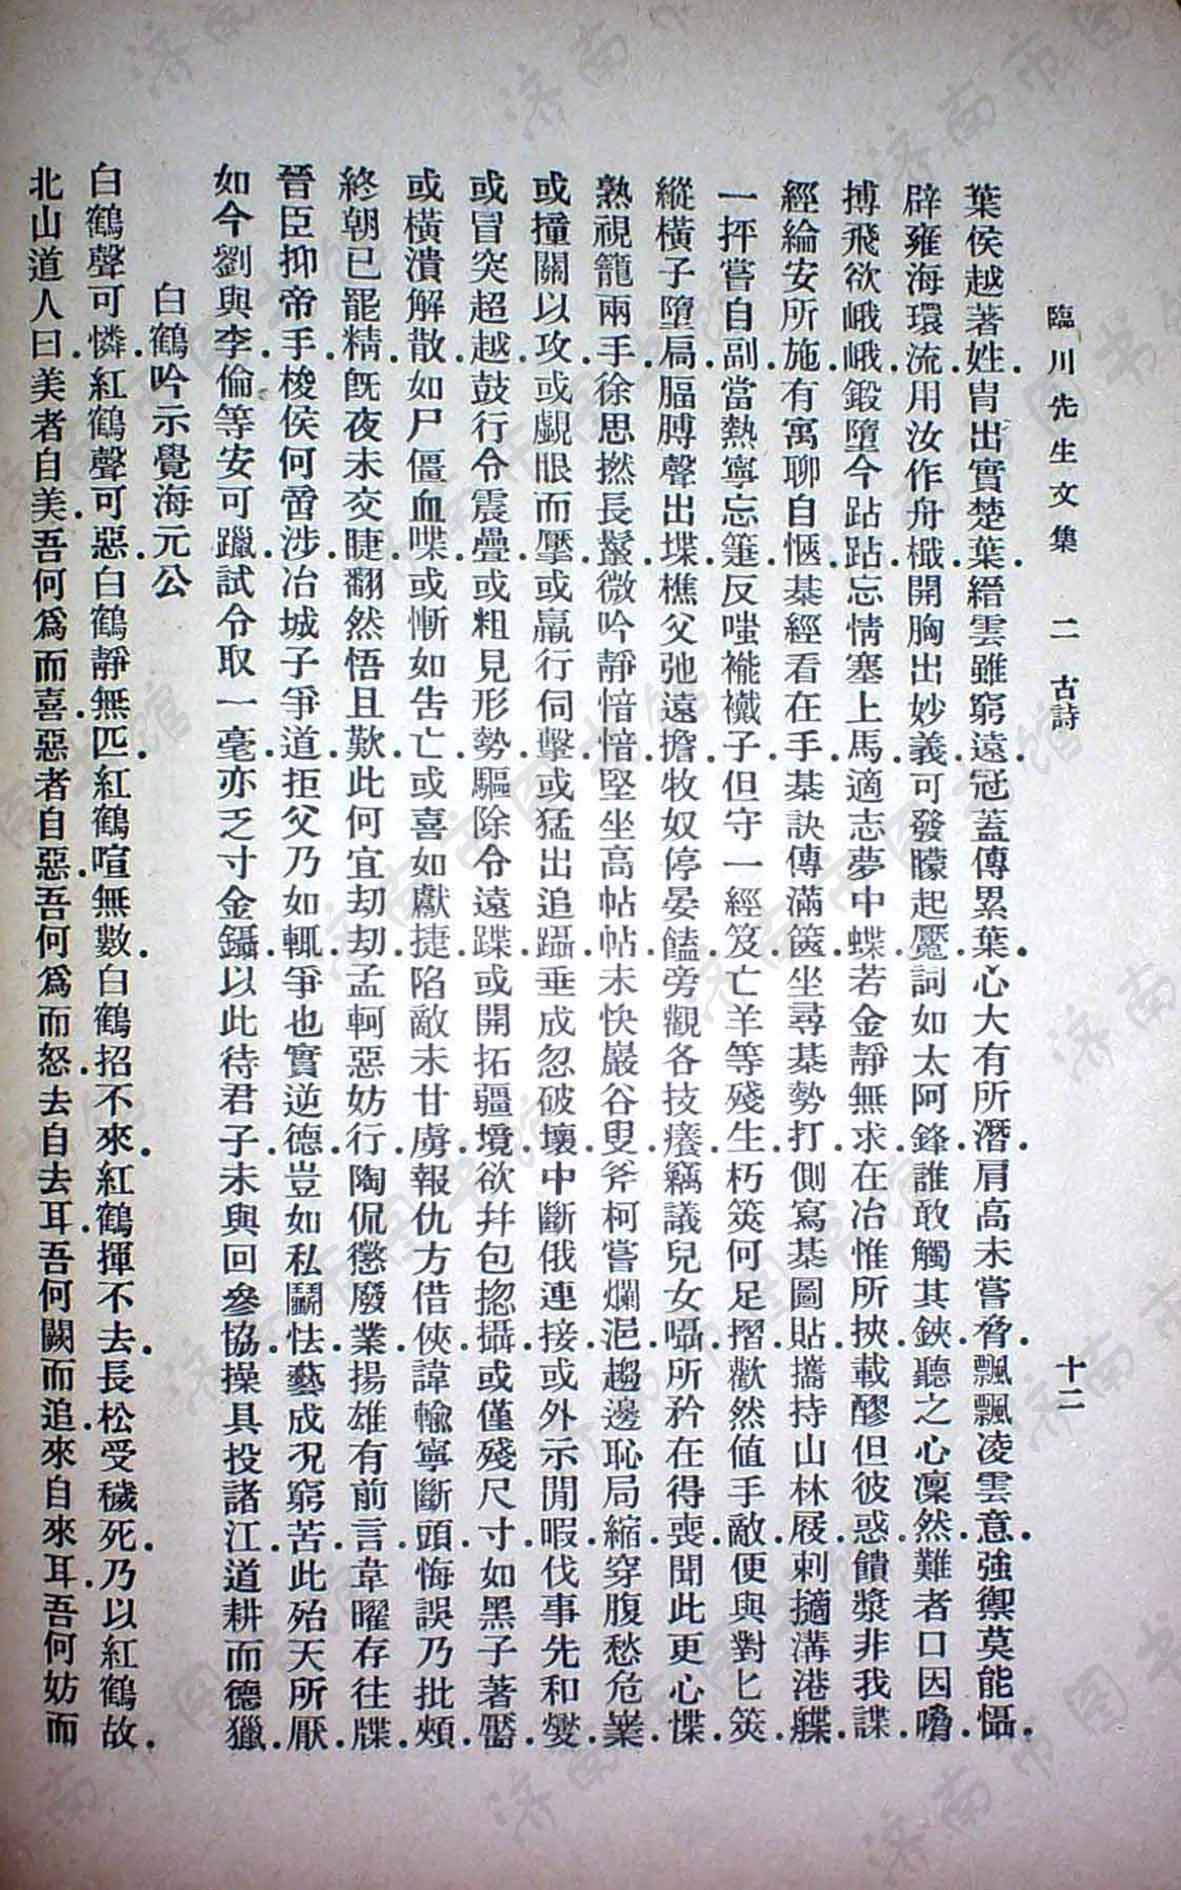 臨川先生文集　二　古詩　十二
葉侯越著姓．胄出實楚葉．縉雲雖窮遠．冠蓋傳累葉．心大有所潛．肩高未嘗脅．飄飄凌雲意．強禦莫能慑．
辟雍海環流．用汝作舟檝．開胸出妙義．可發矇起魘．詞如太阿鋒．誰敢觸其鋏．聽之心凜然．難者口因嗋．
搏飛欲峨峨．鍛墮今跕跕．忘情塞上馬．適志夢中蝶．若金靜無求．在冶惟所挾．載醪但彼惑．饋漿非我諜．
經綸安所施．有寓聊自愜．棊經看在手．棊訣傳滿篋．坐尋棊勢打．側寫棊圖貼．攜持山林屐．刺擿溝港艓．
一抨嘗自副．當熱寧忘箑．反嗤褦襶子．但守一經笈．亡羊等殘生．朽筴何足摺．歡然值手敵．便與對匕筴．
縱橫子墮局．腷膊聲出堞．樵父弛遠擔．牧奴停晏饁．旁觀各技癢．竊議兒女囁．所矜在得喪．聞此更心惵．
熟視籠兩手．徐思撚長鬣．微吟靜愔愔．堅坐高帖帖．未快巖谷叟．斧柯嘗爛浥．趨邊恥局縮．穿腹愁危嶪．
或撞關以攻．或覷眼而擪．或羸行伺擊．或猛出追躡．垂成忽破壞．中斷俄連接．或外示閒暇．伐事先和燮．
或冒突超越．鼓行令震疊．或粗見形勢．驅除令遠蹀．或開拓疆境．欲并包揔攝．或僅殘尺寸．如黑子著靨．
或橫潰解散．如尸僵血喋．或慚如告亡．或喜如獻捷．陷敵未甘虜．報仇方借俠．諱輸寧斷頭．悔誤乃批頰．
終朝已罷精．既夜未交睫．翻然悟且歎．此何宜劫劫．孟軻惡妨行．陶侃懲廢業．揚雄有前言．韋曜存往牒．
晉臣抑帝手．梭侯何啻涉．冶城子爭道．拒父乃如輒．爭也實逆德．豈如私鬭怯．藝成況窮苦．此殆天所厭．
如今劉與李．倫等安可躐．試令取一毫．亦乏寸金鑷．以此待君子．未與回參協．操具投諸江．道耕而德獵．
白鶴吟示覺海元公
白鶴聲可憐．紅鶴聲可惡．白鶴靜無匹．紅鶴喧無數．白鶴招不來．紅鶴揮不去．長松受穢死．乃以紅鶴故．
北山道人曰．美者自美．吾何爲而喜．惡者自惡．吾何爲而怒．去自去耳．吾何闕而追．來自來耳．吾何妨而